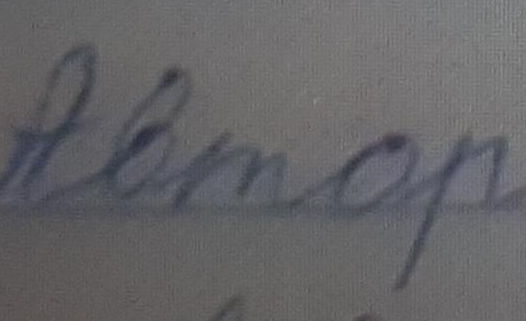 Автор